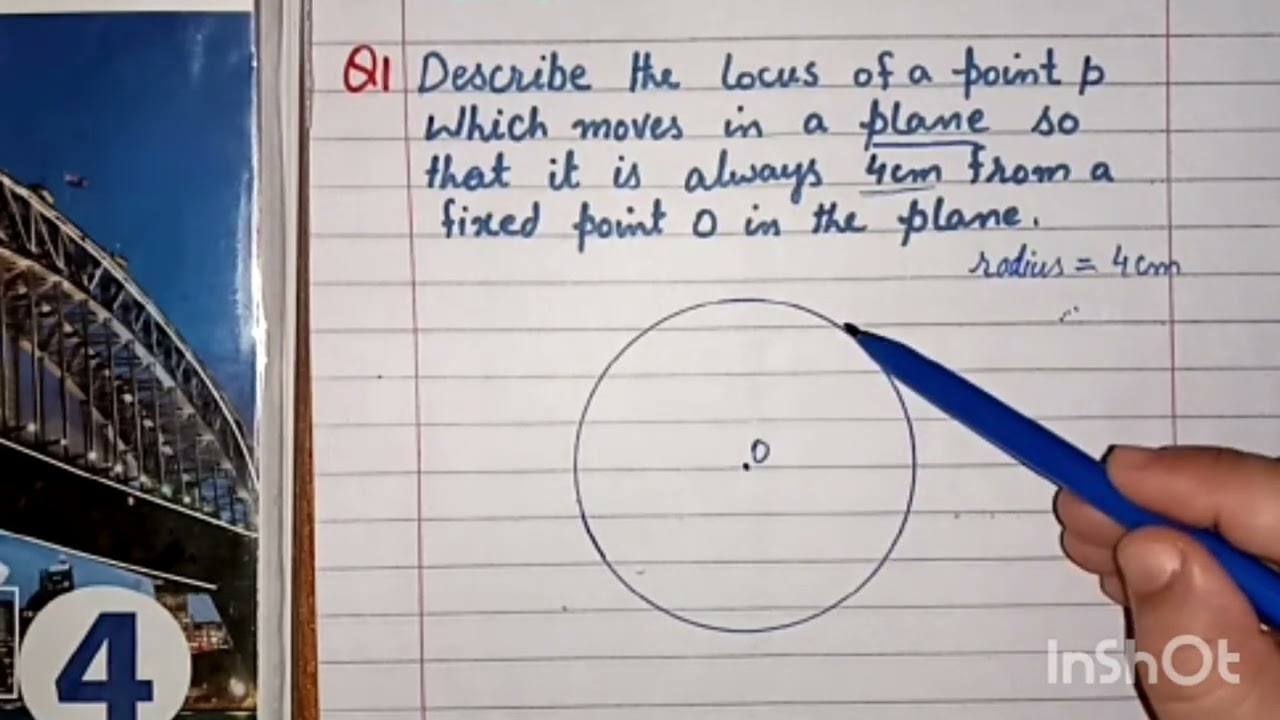 Q1 Describe the locus of a point p
which moves in a plane so
that it is always 4cm from a
fixed point O in the plane.
radius = 4cm
O
4
InShOt